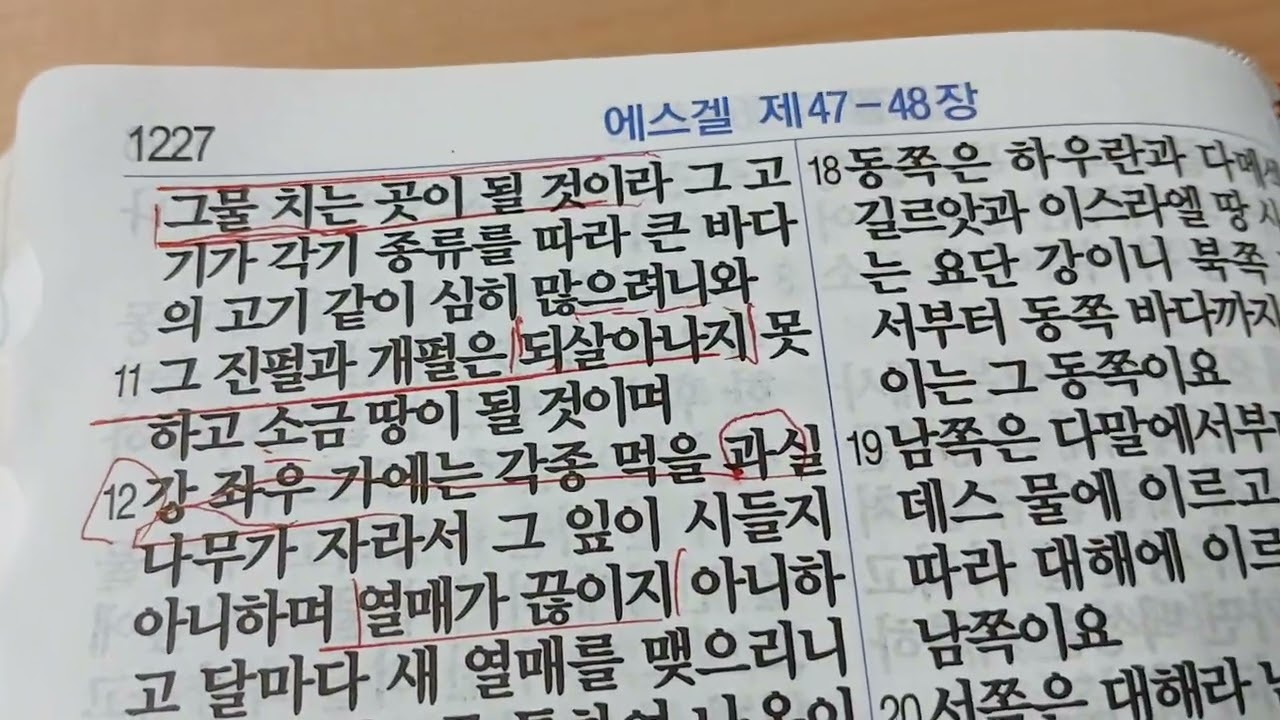 1227
에스겔 제47-48장
그물 치는 곳이 될 것이라 그 고
기가 각기 종류를 따라 큰 바다
의 고기 같이 심히 많으려니와
11 그 진펄과 개펄은 되살아나지 못
하고 소금 땅이 될 것이며
12 강 좌우 가에는 각종 먹을 과실
나무가 자라서 그 잎이 시들지
아니하며 열매가 끊이지 아니하
고 달마다 새 열매를 맺으리니
18 동쪽은 하우란과 다메
길르앗과 이스라엘 땅
는 요단 강이니 북쪽
서부터 동쪽 바다까지
이는 그 동쪽이요
19 남쪽은 다말에서부
데스 물에 이르고
따라 대해에 이르
남쪽이요
20 서쪽은 대해라